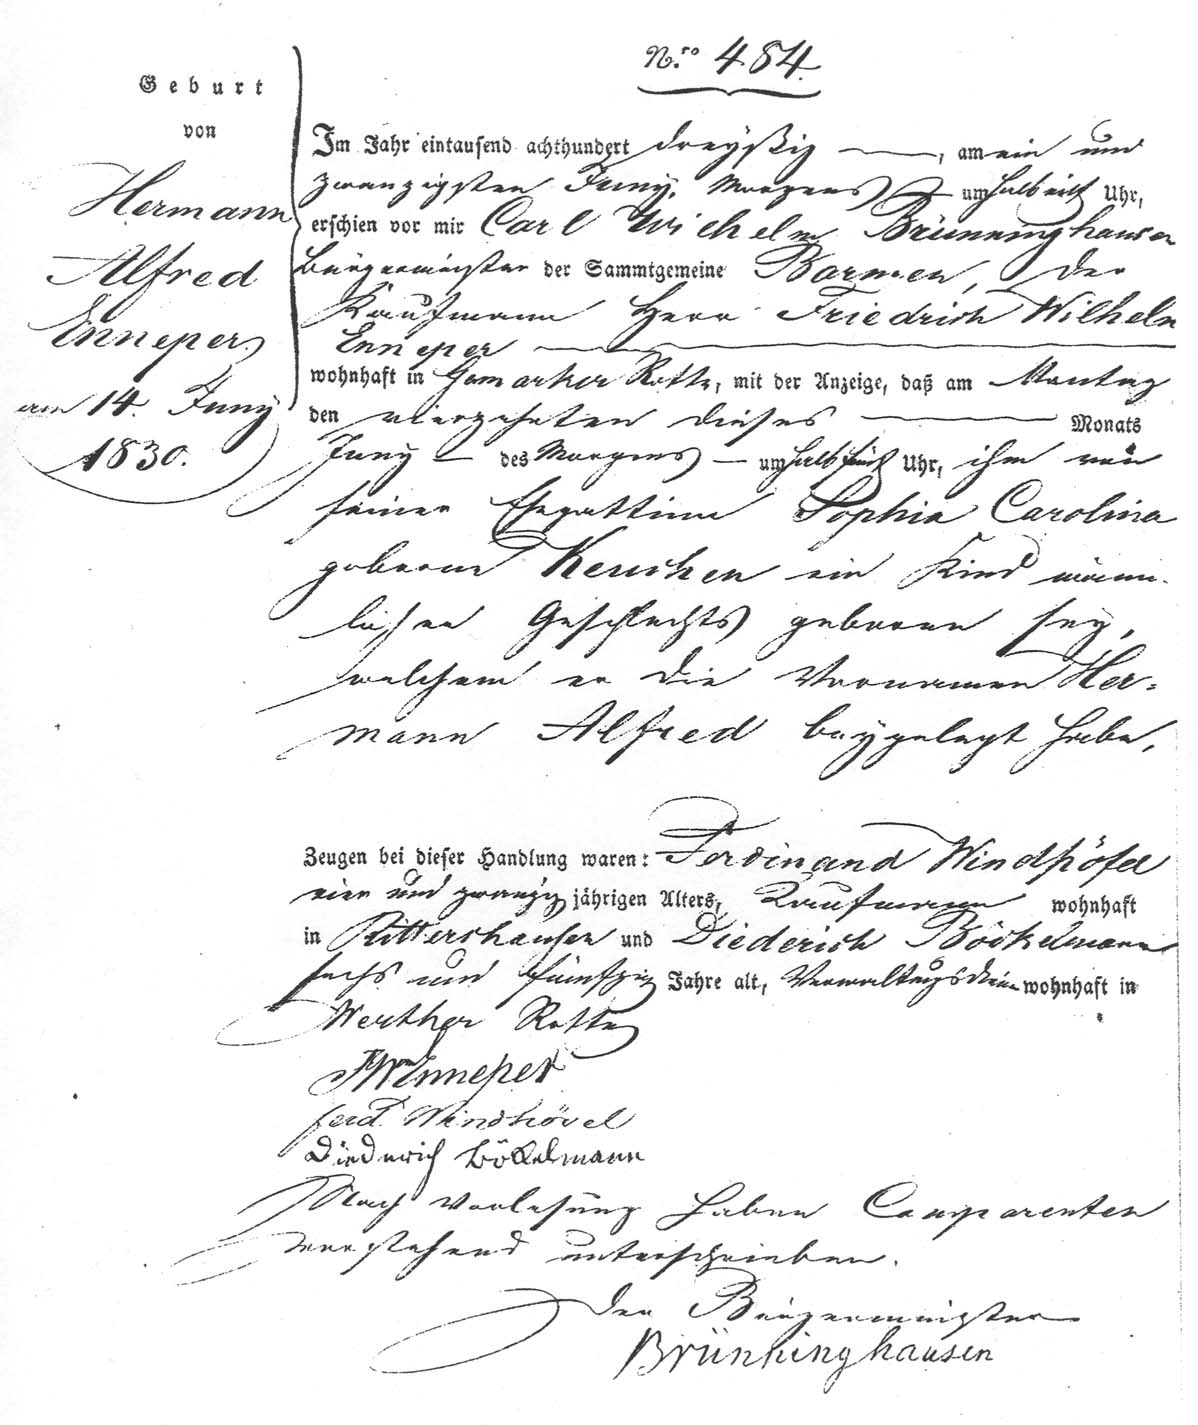 Nro 484.
Geburt
von
Hermann
Alfred
Enneper
am 14. Juny
1830.
Im Jahr eintausend achthundert dreyßig —, am ein und
zwanzigsten Juny, Morgens um halb eilf Uhr,
erschien vor mir Carl Wilhelm Brünninghausen
Bürgermeister der Sammtgemeine Barmen, der
Kaufmann Herr Friedrich Wilhelm
Enneper —
wohnhaft in Gemarker Rotte, mit der Anzeige, daß am Montag
den vierzehnten dieses — Monats
Juny — des Morgens — um halb fünf Uhr, ihm von
seiner Ehegattinn Sophia Carolina
geborne Keuchen ein Kind männ-
lichen Geschlechts geboren sey,
welchem er die Vornamen Her=
mann Alfred beygelegt habe,
Zeugen bei dieser Handlung waren: Ferdinand Windhöfel
vier und zwanzig jährigen Alters, Kaufmann wohnhaft
in Rittershausen und Diederich Böckelmann
sechs und fünfzig Jahre alt, Verwaltungsdiener wohnhaft in
Werther Rotte
FWm Enneper
ferd. Windhövel
Diederich Böckelmann
Nach Vorlesung haben Comparenten
vorstehend unterschrieben.
Der Bürgermeister
Brünninghausen